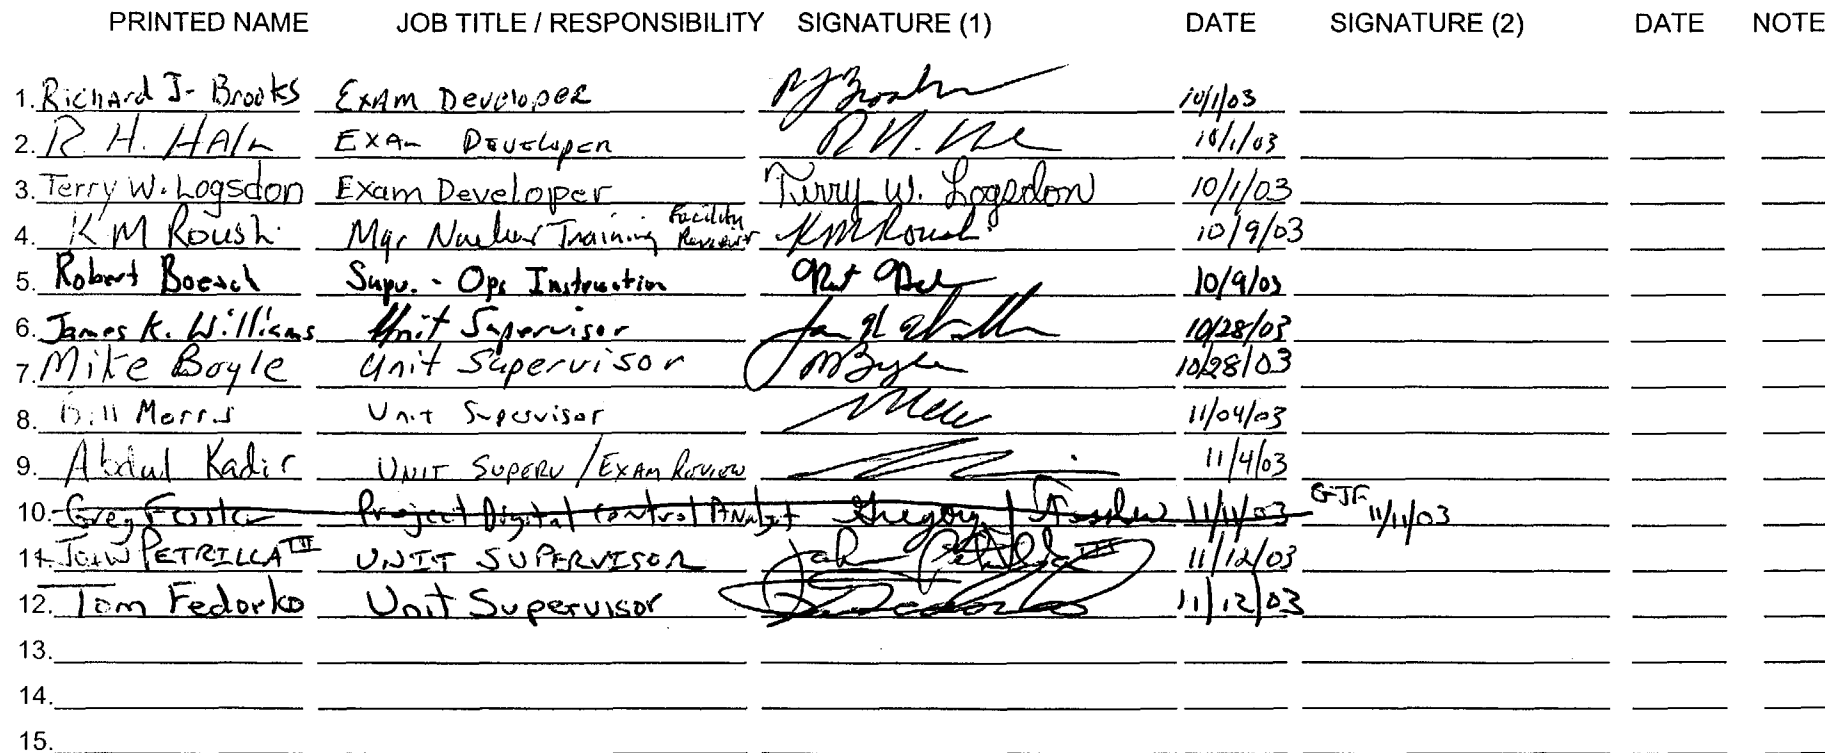 PRINTED NAME JOB TITLE / RESPONSIBILITY SIGNATURE (1) DATE SIGNATURE (2) DATE NOTE
1. Richard J. Brooks Exam Developer RJ Brooks 10/1/03
2. R. H. HAln Exam Developer 10/1/03
3. Terry W. Logsdon Exam Developer Terry W. Logsdon 10/1/03
4. K M Roush Mgr Nuclear Training Facility Reviewer KM Roush 10/9/03
5. Robert Boesch Supv. - Ops Instruction 10/9/03
6. James K. Williams Unit Supervisor 10/28/03
7. Mike Boyle Unit Supervisor M Boyle 10/28/03
8. Bill Morris Unit Supervisor 11/04/03
9. Abdul Kadir UNIT SUPERV / EXAM REVIEW 11/4/03
10. Greg Project Digital Control Analyst Gregory J 11/11/03 GJF 11/11/03
11. John PETRILLA III UNIT SUPERVISOR John Petrilla III 11/12/03
12. Tom Fedorko Unit Supervisor 11/12/03
13.
14.
15.